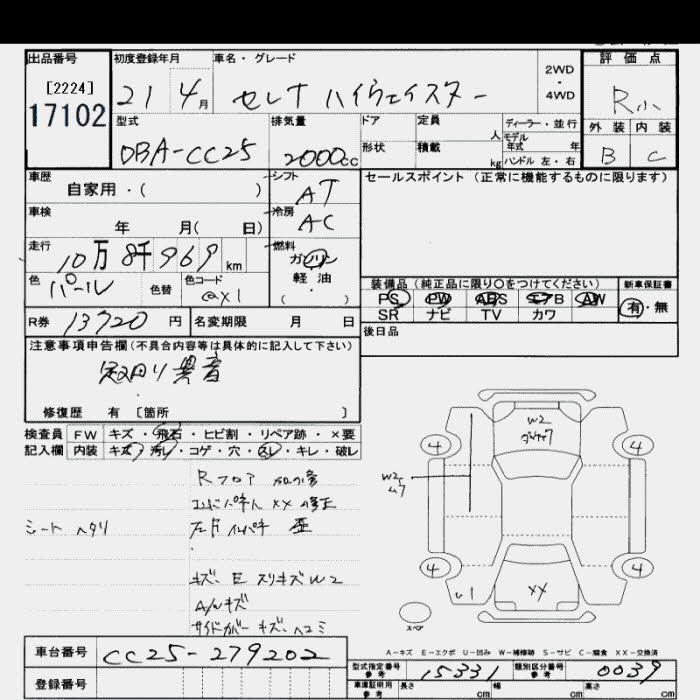 出品番号
[2224]
17102
初度登録年月
21 4月
車名・グレード
セレナ ハイウェイスター
2WD
・
4WD
評価点
R小
外装 内装
B C
型式
DBA-CC25
排気量
2000cc
ドア
定員
人
形状
積載
kg
ディーラー・並行
モデル
年式 年
ハンドル 左・右
車歴
自家用・( )
シフト
AT
車検
年 月( 日)
冷房
AC
走行
10万8千969km
燃料
ガソリン
軽油
( ・ )
色
パール
色替
色コード
QX1
R券 13720円
名変期限 月 日
セールスポイント(正常に機能するものに限ります)
装備品(純正品に限り○をつけてください)
PS PW ABS エアB AW
SR ナビ TV カワ
新車保証書
有・無
後日品
注意事項申告欄(不具合内容等は具体的に記入して下さい)
異音
修復歴 有 [箇所 ]
検査員 FW キズ・飛石・ヒビ割・リペア跡・×要
記入欄 内装 キズ・汚レ・コゲ・穴・スレ・キレ・破レ
Rフロア
XX 修正
シート ヘタリ
キズ、E スリキズ W2
A/Wキズ
サイドカバー キズ、ヘコミ
W2
4 4
W2
4 4
U1
XX
スペア
A-キズ E-エクボ U-凹み W-補修跡 S-サビ C-腐食 XX-交換済
車台番号 CC25-279202
登録番号
型式指定番号
参考
15331
類別区分番号
参考
0039
車庫証明用
参考
長さ cm 幅 cm 高さ cm